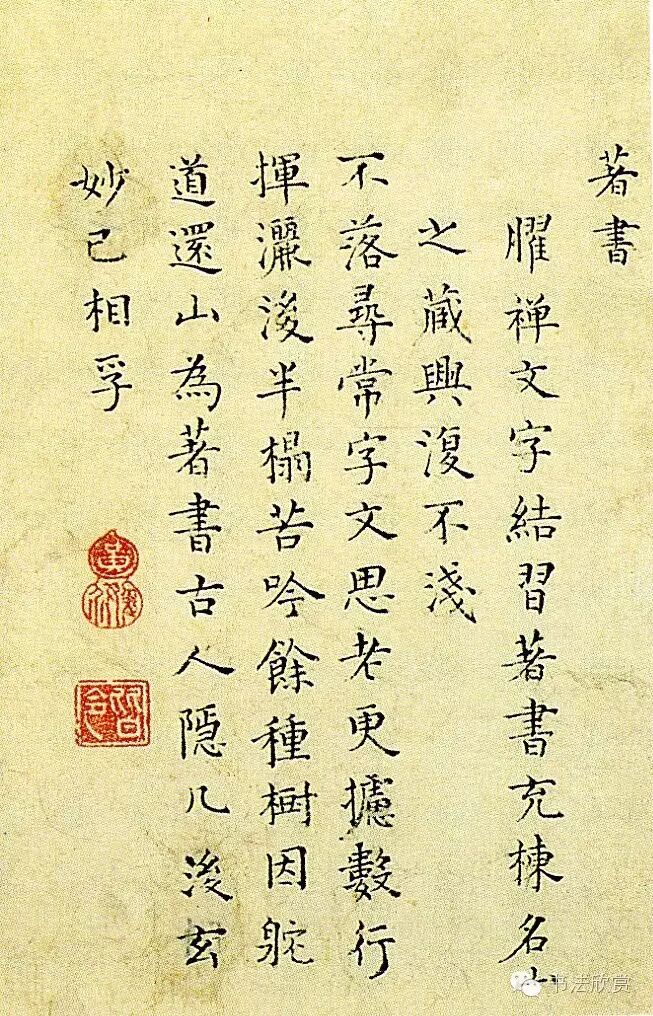 著書
臞禅文字結習著書充棟名山
之藏興復不淺
不落尋常字文思老更攄數行
揮灑後半榻苦吟餘種樹因舵
道還山為著書古人隱几後玄
妙已相孚
书法欣赏